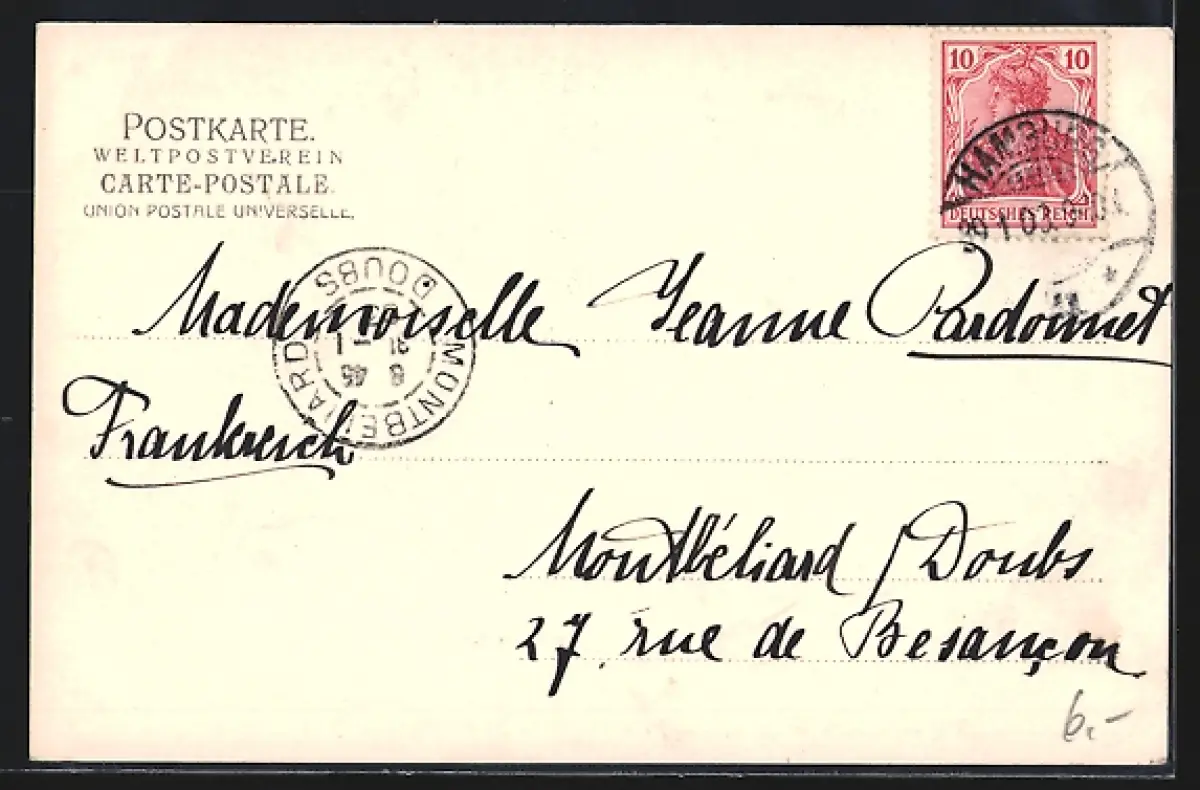 POSTKARTE.
WELTPOSTVEREIN
CARTE-POSTALE.
UNION POSTALE UNIVERSELLE.
10 10
DEUTSCHES REICH
HAMBURG
1 03
DOUBS
MONTBELIARD
8 45
21 - 1
Mademoiselle Jeanne Pardonnet
Frankreich
Montbéliard / Doubs
27, rue de Besançon
6,-